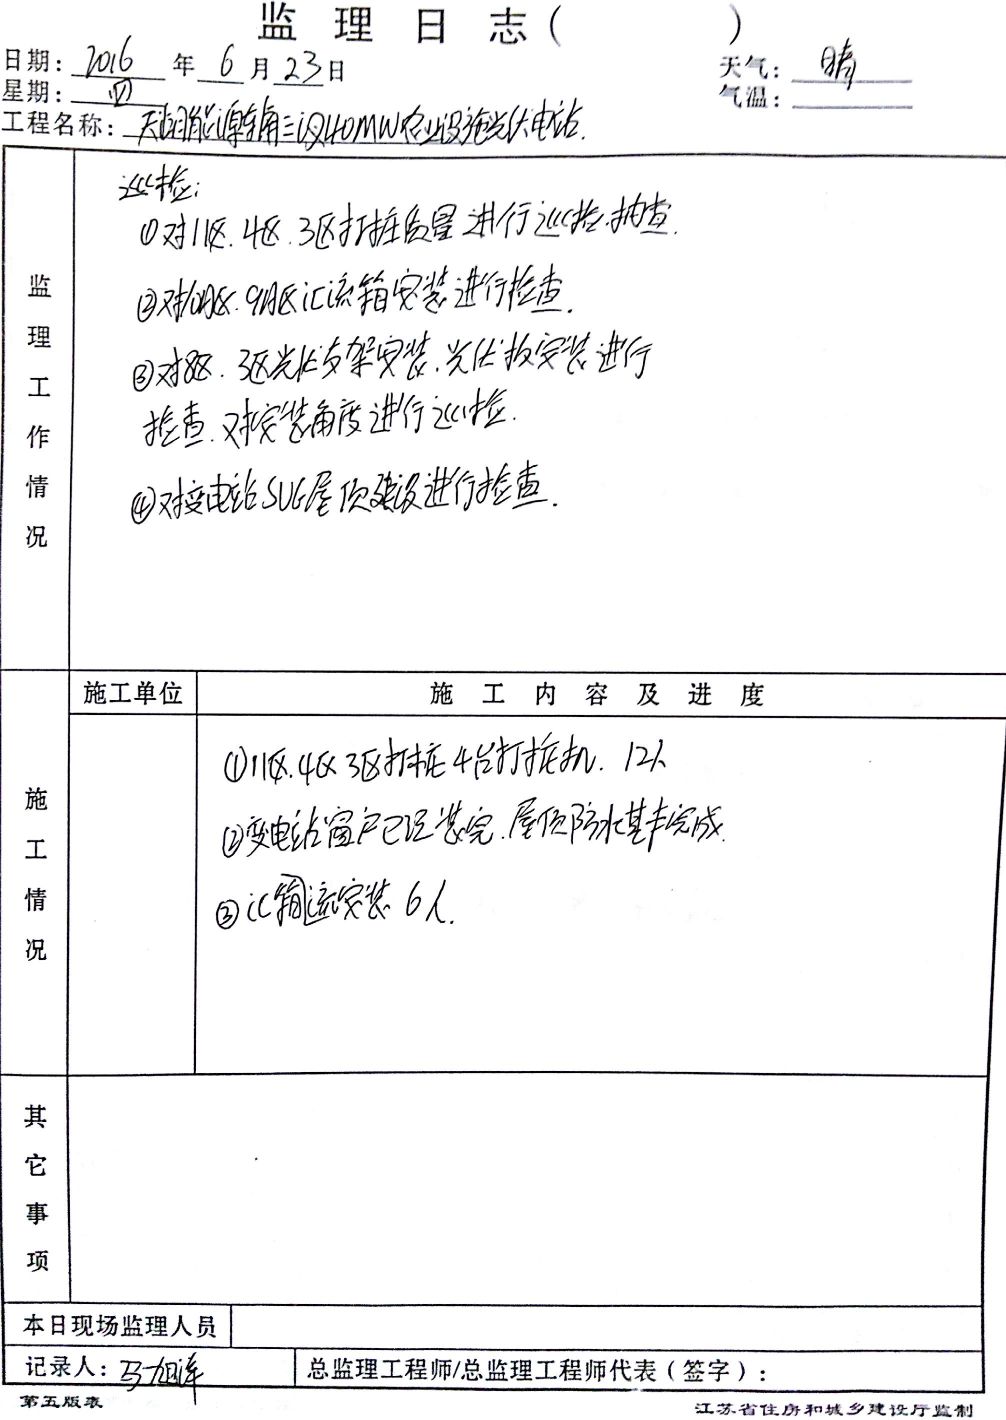 监 理 日 志 (          )
日期: 2016 年 6 月 23 日
天气: 晴
星期: 四
气温:
工程名称: 40MW农业设施光伏电站.
监理工作情况
巡检:
①对11区.4区.3区打桩质量进行巡检.抽查.
②对 汇流箱安装进行检查.
③对8区.3区光伏支架安装.光伏板安装进行
检查.对安装角度进行巡检.
④对变电站SVG屋顶建设进行检查.
施工情况
施工单位
施 工 内 容 及 进 度
①11区.4区3区打桩4台打桩机. 12人
②变电站窗户已经装完.屋顶防水基本完成.
③汇箱流安装 6人.
其它事项
本日现场监理人员
记录人:
总监理工程师/总监理工程师代表(签字):
第五版表
江苏省住房和城乡建设厅监制